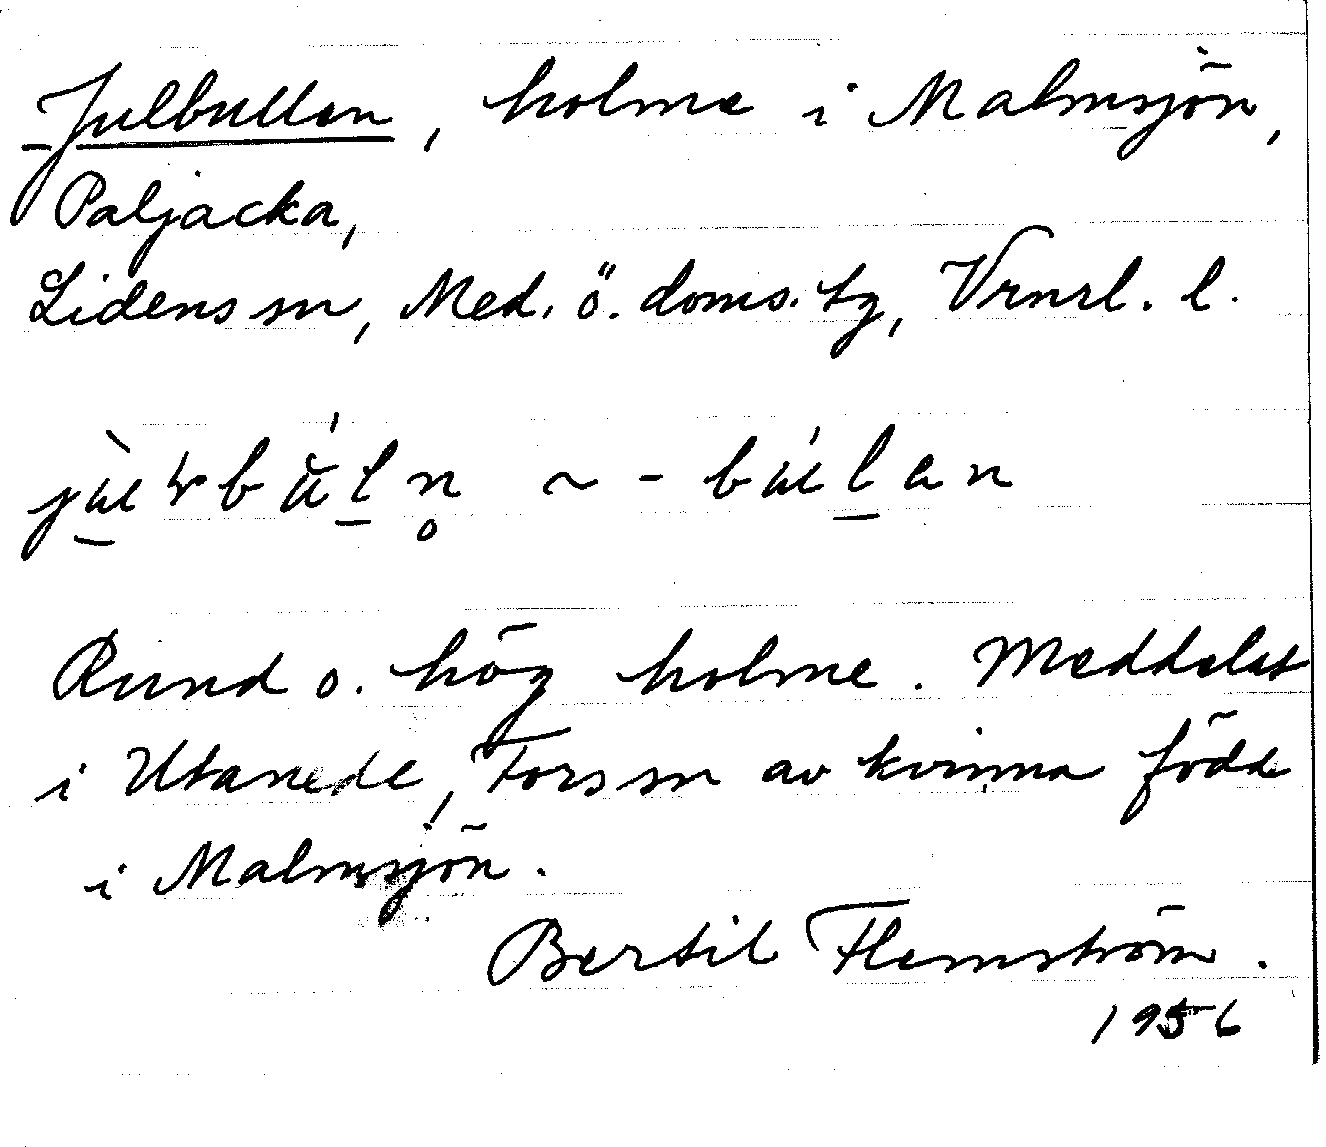 Julbullen, holme i Malmsjön,
Paljacka,
Lidens sn, Med. ö. doms. tg, Vrnrl. l.
~ -
Rund o. hög holme. Meddelat
i Utanede, Fors sn av kvinna född
i Malmsjön.
Bertil Flemström.
1956